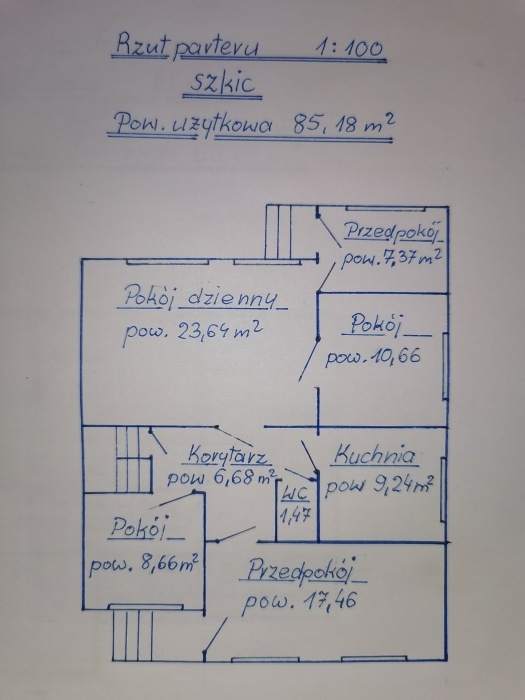 Rzut parteru 1:100
szkic
Pow. użytkowa 85,18 m²
Przedpokój
pow. 7,37 m²
Pokój dzienny
pow. 23,64 m²
Pokój
pow. 10,66
Korytarz
pow 6,68 m²
Kuchnia
pow 9,24 m²
WC
1,47
Pokój
pow. 8,66 m²
Przedpokój
pow. 17,46